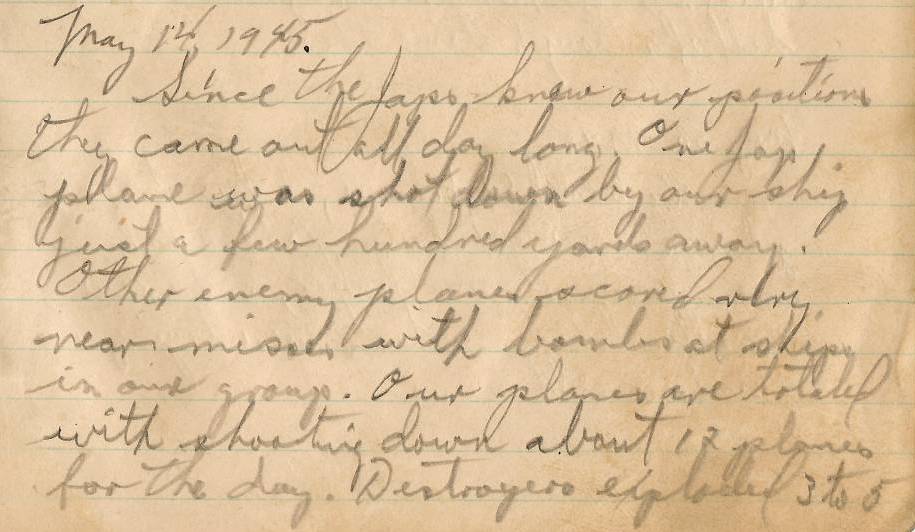 May 14, 1945.
Since the Japs knew our positions
they came out all day long. One Jap
plane was shot down by our ship
just a few hundred yards away.
Other enemy planes scored very
near misses with bombs at ships
in our group. Our planes are totaled
with shooting down about 12 planes
for the day. Destroyers exploded 3 to 5